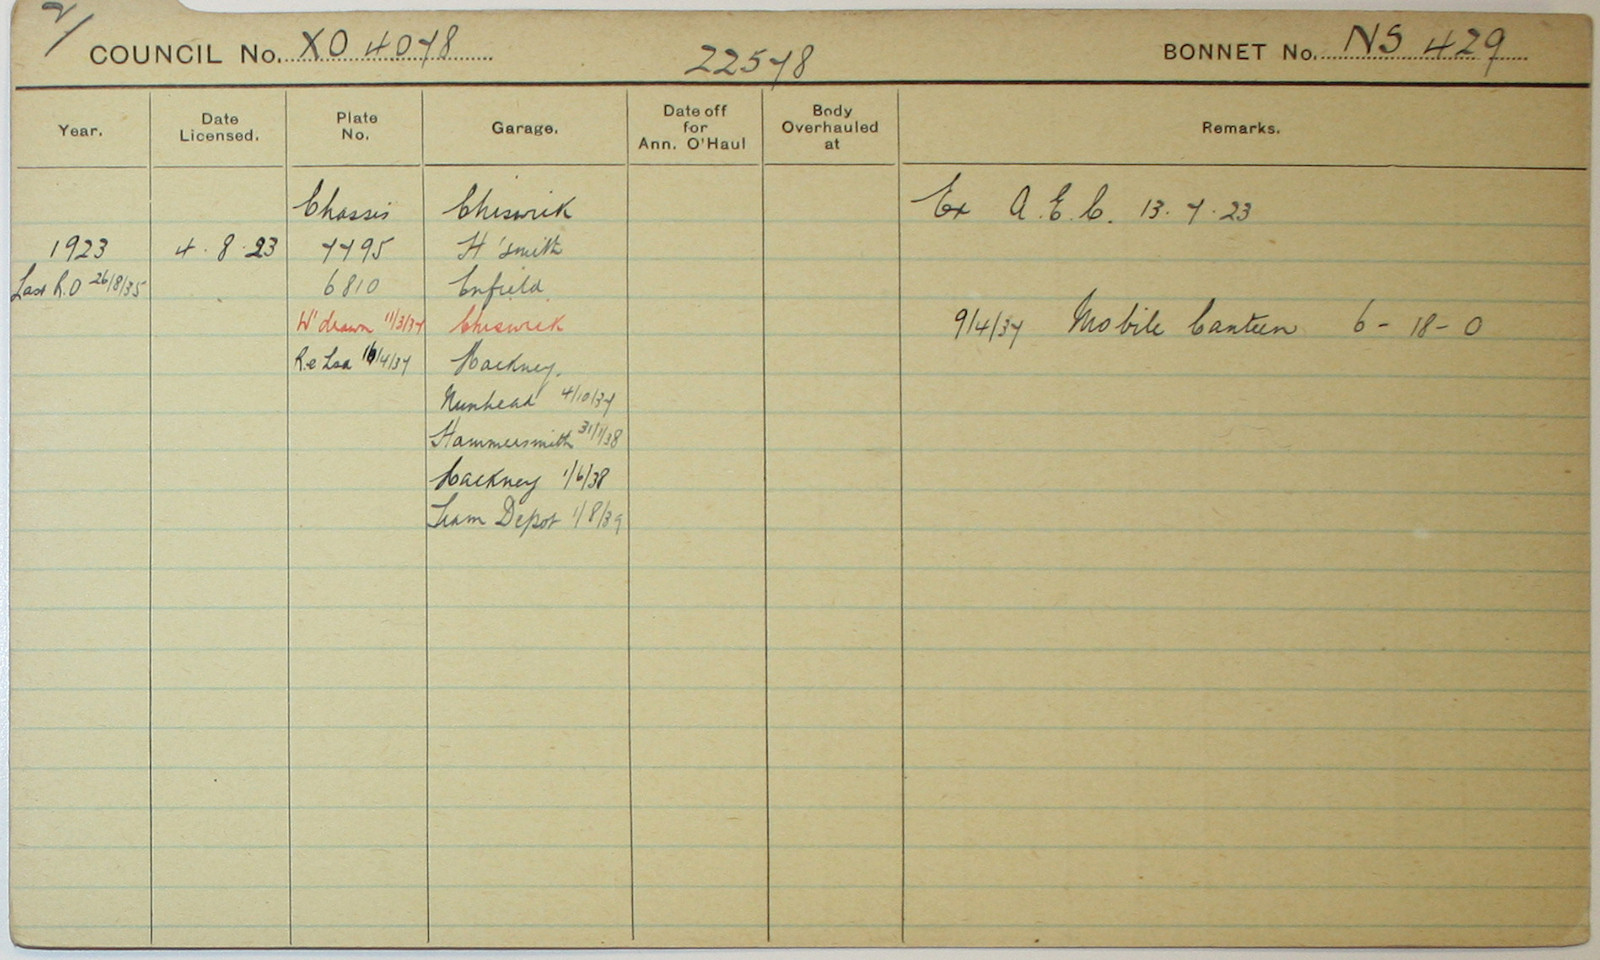 2/
COUNCIL No. XO 4078 22578 BONNET No. NS 429
Year. Date Licensed. Plate No. Garage. Date off for Ann. O'Haul Body Overhauled at Remarks.
Chassis Chiswick Ex A.E.C. 13.7.23
1923 4.8.23 7795 H'smith
Last R.O 26/8/35 6810 Enfield
W'drawn 11/3/37 Chiswick 9/4/37 Mobile Canteen 6-18-0
Re Lsd 16/4/37 Hackney.
Nunhead 4/10/37
Hammersmith 31/1/38
Hackney 1/6/38
Tram Depot 1/8/39